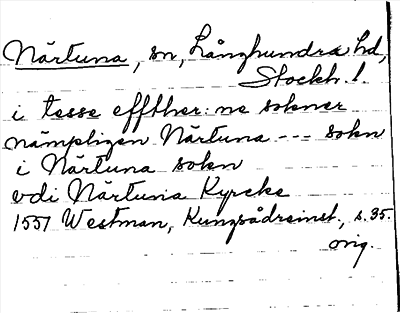 Närtuna, sn, Långhundra hd,
Stockh. l.
i tesse effther: ne sokner
nämpligen Närtuna --- sokn
i Närtuna sokn
vdi Närtuna Kyrcke
1557 Westman, Kungsådreinst., s. 35.
orig.